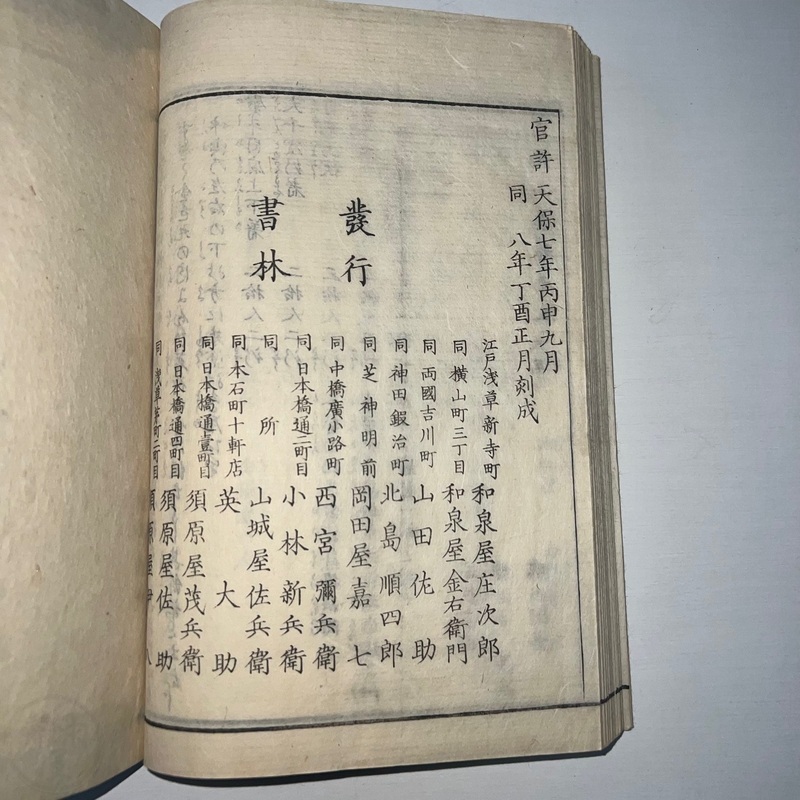 官許 天保七年丙申九月
同 八年丁酉正月刻成
發行
書林
江戸浅草新寺町 和泉屋庄次郎
同横山町三丁目 和泉屋金右衛門
同両國吉川町 山田佐助
同神田鍜冶町 北島順四郎
同芝神明前 岡田屋嘉七
同中橋廣小路町 西宮彌兵衛
同日本橋通二町目 小林新兵衛
同所 山城屋佐兵衛
同本石町十軒店 英大助
同日本橋通壹町目 須原屋茂兵衛
同日本橋通四町目 須原屋佐助
同浅草茅町二町目 須原屋伊八